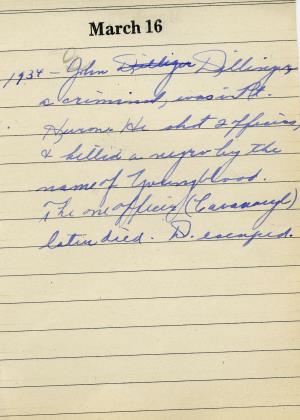 March 16
1934 - John Dilliger Dillinger
a criminal, was in Pt.
Huron. He shot 2 officers,
& killed a negro by the
name of Youngblood.
The one officer (Cavanaugh)
later died. D. escaped.